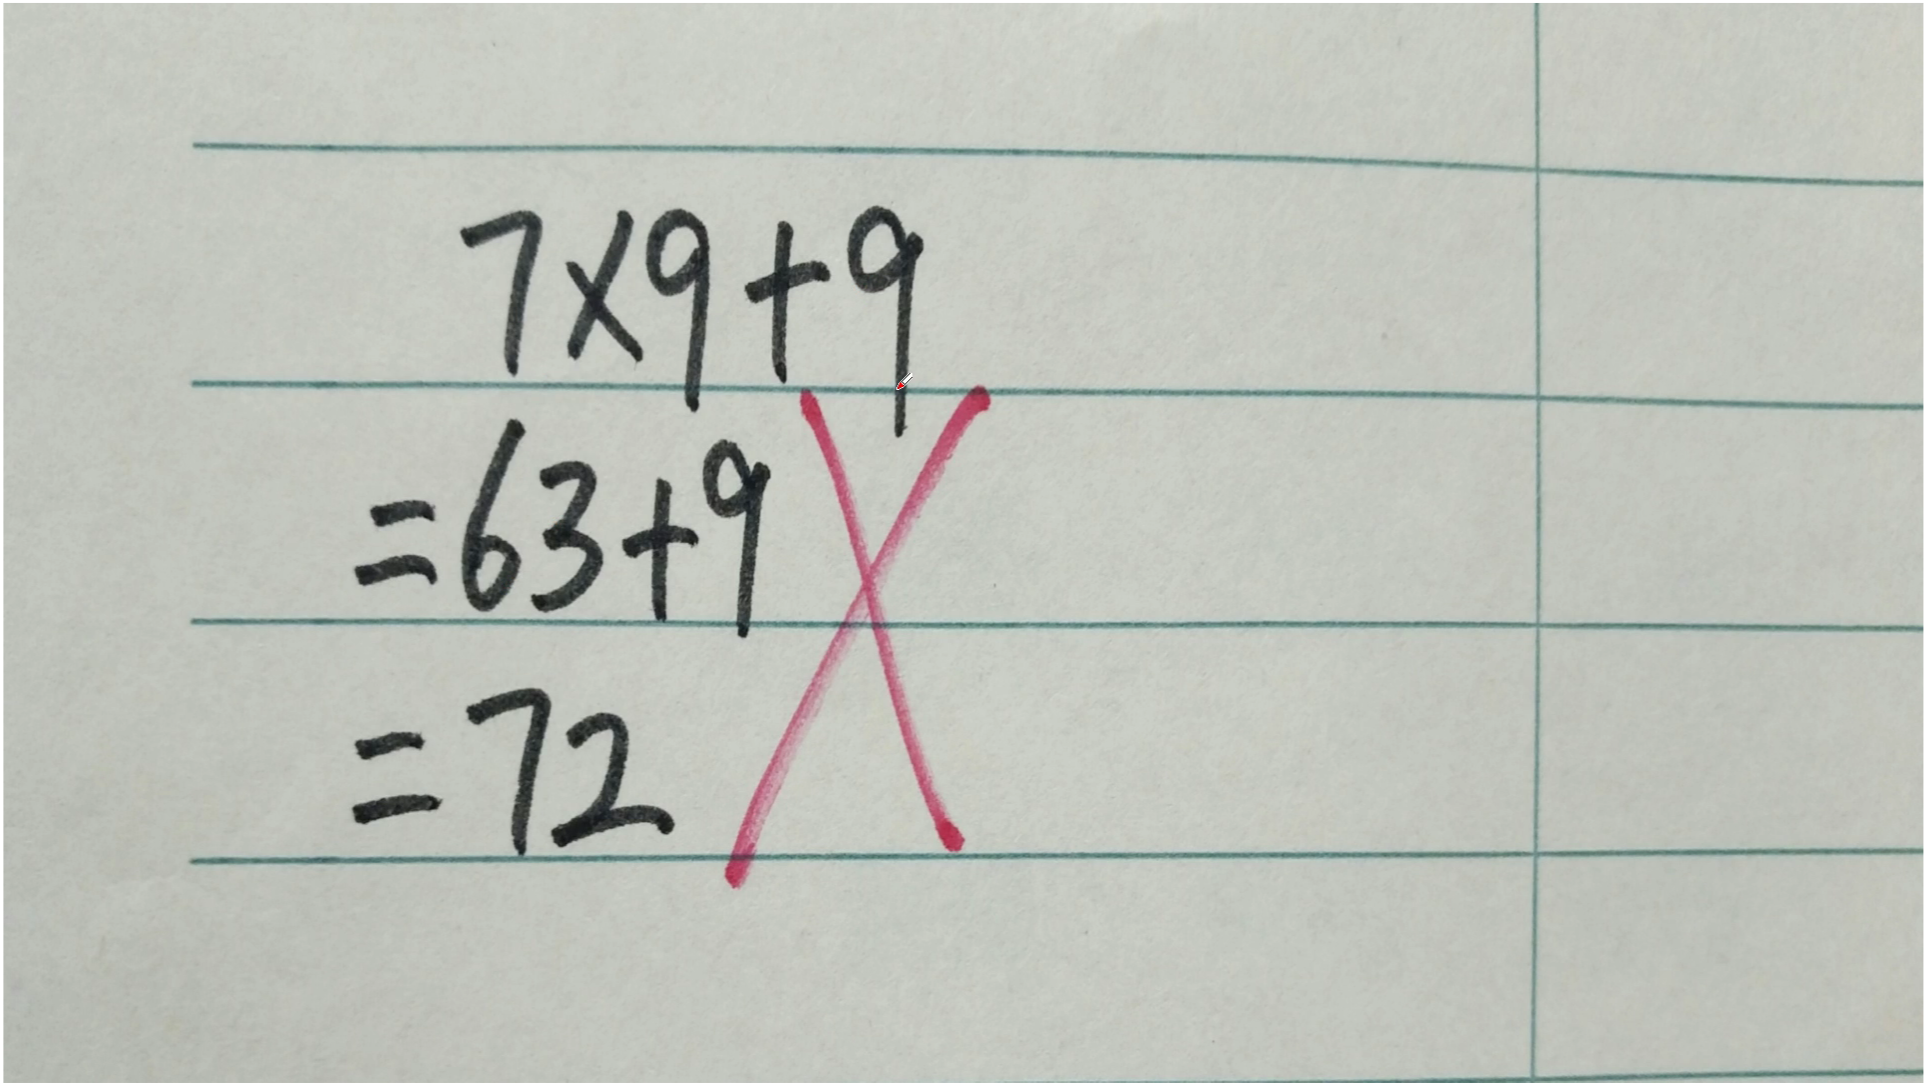 7×9+9
=63+9
=72